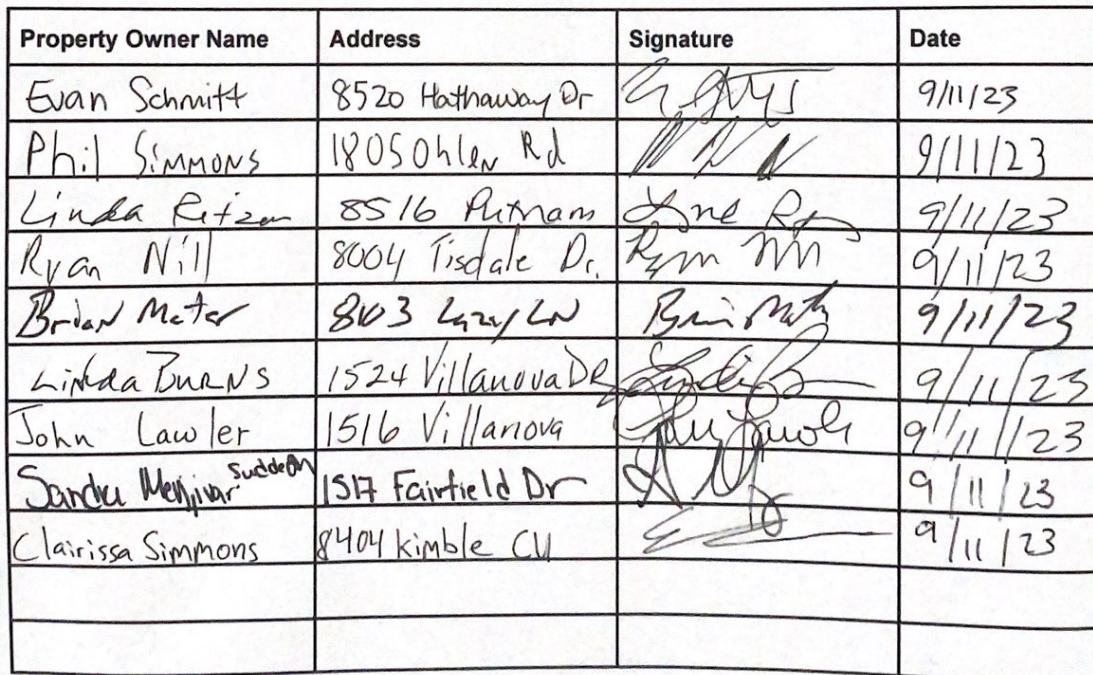 Property Owner Name Address Signature Date
Evan Schmitt 8520 Hathaway Dr 9/11/23
Phil Simmons 1805 Ohlen Rd 9/11/23
Linda Ritzen 8516 Putnam 9/11/23
Ryan Nill 8004 Tisdale Dr. 9/11/23
Brian Mater Ln 9/11/23
Linda Burns 1524 Villanova Dr 9/11/23
John Lawler 1516 Villanova 9/11/23
Sandra Menjivar Suddeth 1517 Fairfield Dr 9/11/23
Clairissa Simmons 8404 Kimble CV 9/11/23